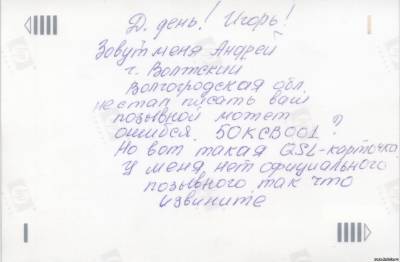 Д. день! Игорь!
Зовут меня Андрей
г. Волтский
Волгородская обл.
не стал писать ваш
позывной мотет
ошибся. 50КСВ001 ?
Но вот такая QSL-карточка.
У меня нет официального
позывного так что
извините